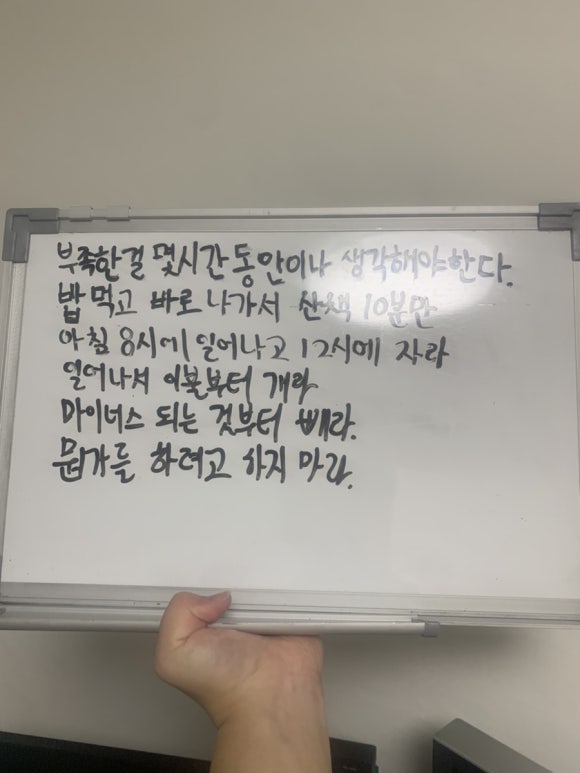 부족한걸 몇시간 동안이나 생각해야한다.
밥 먹고 바로 나가서 산책 10분만
아침 8시에 일어나고 12시에 자라
일어나서 이불부터 개라
마이너스 되는 것부터 빼라.
뭔가를 하려고 하지 마라.